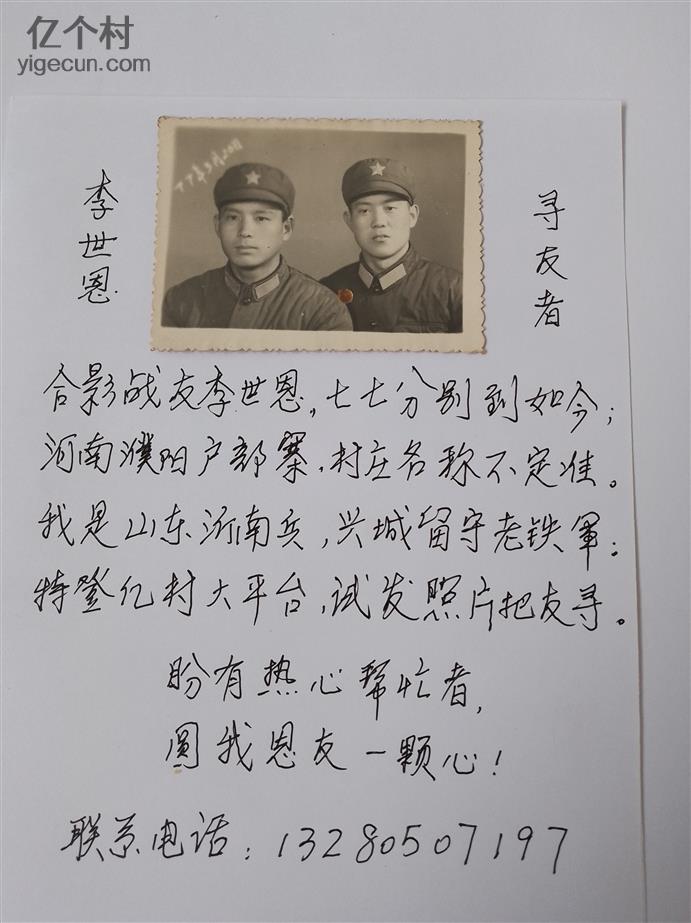 亿个村
yigecun.com
李世恩
寻友者
合影战友李世恩，七七分别到如今；
河南濮阳户部寨，村庄名称不定准。
我是山东沂南兵，兴城留守老铁军；
特登亿村大平台，试发照片把友寻。
盼有热心帮忙者，
圆我恩友一颗心！
联系电话：13280507197